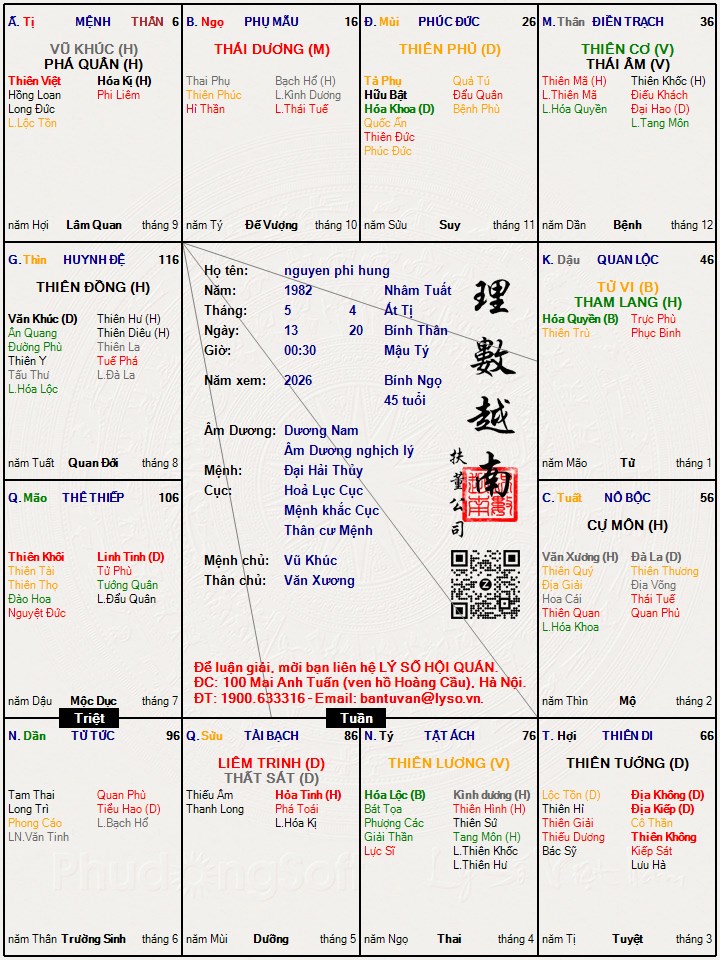 Ã. Tị MỆNH THÂN 6
VŨ KHÚC (H)
PHÁ QUÂN (H)
Thiên Việt Hóa Kị (H)
Hồng Loan Phi Liêm
Long Đức
L.Lộc Tồn
năm Hợi Lâm Quan tháng 9
B. Ngọ PHỤ MẪU 16
THÁI DƯƠNG (M)
Thai Phụ Bạch Hổ (H)
Thiên Phúc L.Kình Dương
Hỉ Thần L.Thái Tuế
năm Tý Đế Vượng tháng 10
Đ. Mùi PHÚC ĐỨC 26
THIÊN PHỦ (D)
Tả Phụ Quả Tú
Hữu Bật Đẩu Quân
Hóa Khoa (D) Bệnh Phù
Quốc Ấn
Thiên Đức
Phúc Đức
năm Sửu Suy tháng 11
M. Thân ĐIỀN TRẠCH 36
THIÊN CƠ (V)
THÁI ÂM (V)
Thiên Mã (H) Thiên Khốc (H)
L.Thiên Mã Điếu Khách
L.Hóa Quyền Đại Hao (D)
L.Tang Môn
năm Dần Bệnh tháng 12
G. Thìn HUYNH ĐỆ 116
THIÊN ĐỒNG (H)
Văn Khúc (D) Thiên Hư (H)
Ân Quang Thiên Diêu (H)
Đường Phù Thiên La
Thiên Y Tuế Phá
Tấu Thư L.Đà La
L.Hóa Lộc
năm Tuất Quan Đới tháng 8
Họ tên: nguyen phi hung
Năm: 1982 Nhâm Tuất
Tháng: 5 4 Ất Tị
Ngày: 13 20 Bính Thân
Giờ: 00:30 Mậu Tý
Năm xem: 2026 Bính Ngọ
45 tuổi
Âm Dương: Dương Nam
Âm Dương nghịch lý
Mệnh: Đại Hải Thủy
Cục: Hoả Lục Cục
Mệnh khắc Cục
Thân cư Mệnh
Mệnh chủ: Vũ Khúc
Thân chủ: Văn Xương
理數越南
扶董公司
Z
Để luận giải, mời bạn liên hệ LÝ SỐ HỘI QUÁN.
ĐC: 100 Mai Anh Tuấn (ven hồ Hoàng Cầu), Hà Nội.
ĐT: 1900.633316 - Email: bantuvan@lyso.vn.
K. Dậu QUAN LỘC 46
TỬ VI (B)
THAM LANG (H)
Hóa Quyền (B) Trực Phù
Thiên Trù Phục Binh
năm Mão Tử tháng 1
Q. Mão THÊ THIẾP 106
Thiên Khôi Linh Tinh (D)
Thiên Tài Tử Phù
Thiên Thọ Tướng Quân
Đào Hoa L.Đẩu Quân
Nguyệt Đức
năm Dậu Mộc Dục tháng 7
C. Tuất NÔ BỘC 56
CỰ MÔN (H)
Văn Xương (H) Đà La (D)
Thiên Quý Thiên Thương
Địa Giải Địa Võng
Hoa Cái Thái Tuế
Thiên Quan Quan Phủ
L.Hóa Khoa
năm Thìn Mộ tháng 2
Triệt
Tuần
N. Dần TỬ TỨC 96
Tam Thai Quan Phù
Long Trì Tiểu Hao (D)
Phong Cáo L.Bạch Hổ
LN.Văn Tinh
năm Thân Trường Sinh tháng 6
Q. Sửu TÀI BẠCH 86
LIÊM TRINH (D)
THẤT SÁT (D)
Thiếu Âm Hỏa Tinh (H)
Thanh Long Phá Toái
L.Hóa Kị
năm Mùi Dưỡng tháng 5
N. Tý TẬT ÁCH 76
THIÊN LƯƠNG (V)
Hóa Lộc (B) Kình dương (H)
Bát Tọa Thiên Hình (H)
Phượng Các Thiên Sứ
Giải Thần Tang Môn (H)
Lực Sĩ L.Thiên Khốc
L.Thiên Hư
năm Ngọ Thai tháng 4
T. Hợi THIÊN DI 66
THIÊN TƯỚNG (D)
Lộc Tồn (D) Địa Không (D)
Thiên Hỉ Địa Kiếp (D)
Thiên Giải Cô Thần
Thiếu Dương Thiên Không
Bác Sỹ Kiếp Sát
Lưu Hà
năm Tị Tuyệt tháng 3